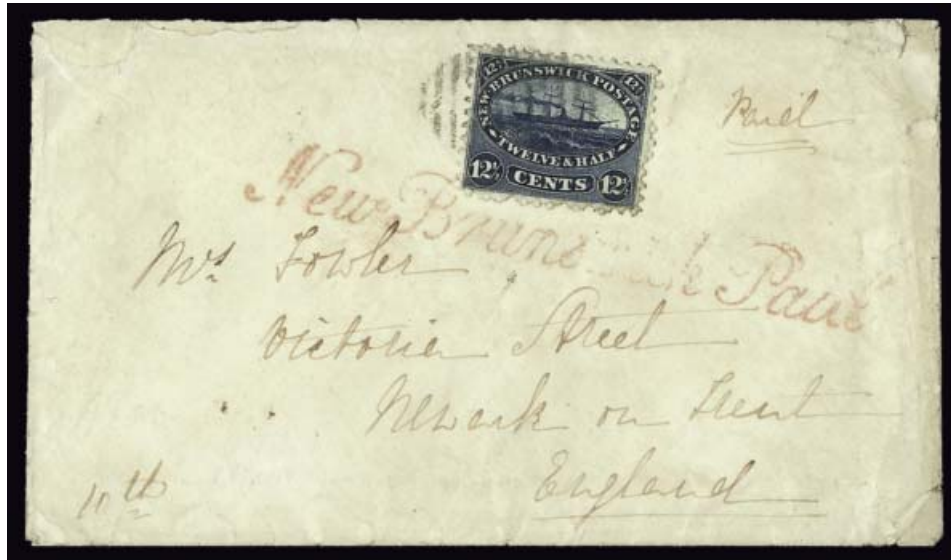 12½ 12½
NEW BRUNSWICK POSTAGE
TWELVE & HALF
12½ CENTS 12½
Paid
New Brunswick Paid
Mrs Fowler
Victoria Street
Newark on Trent
England
10th